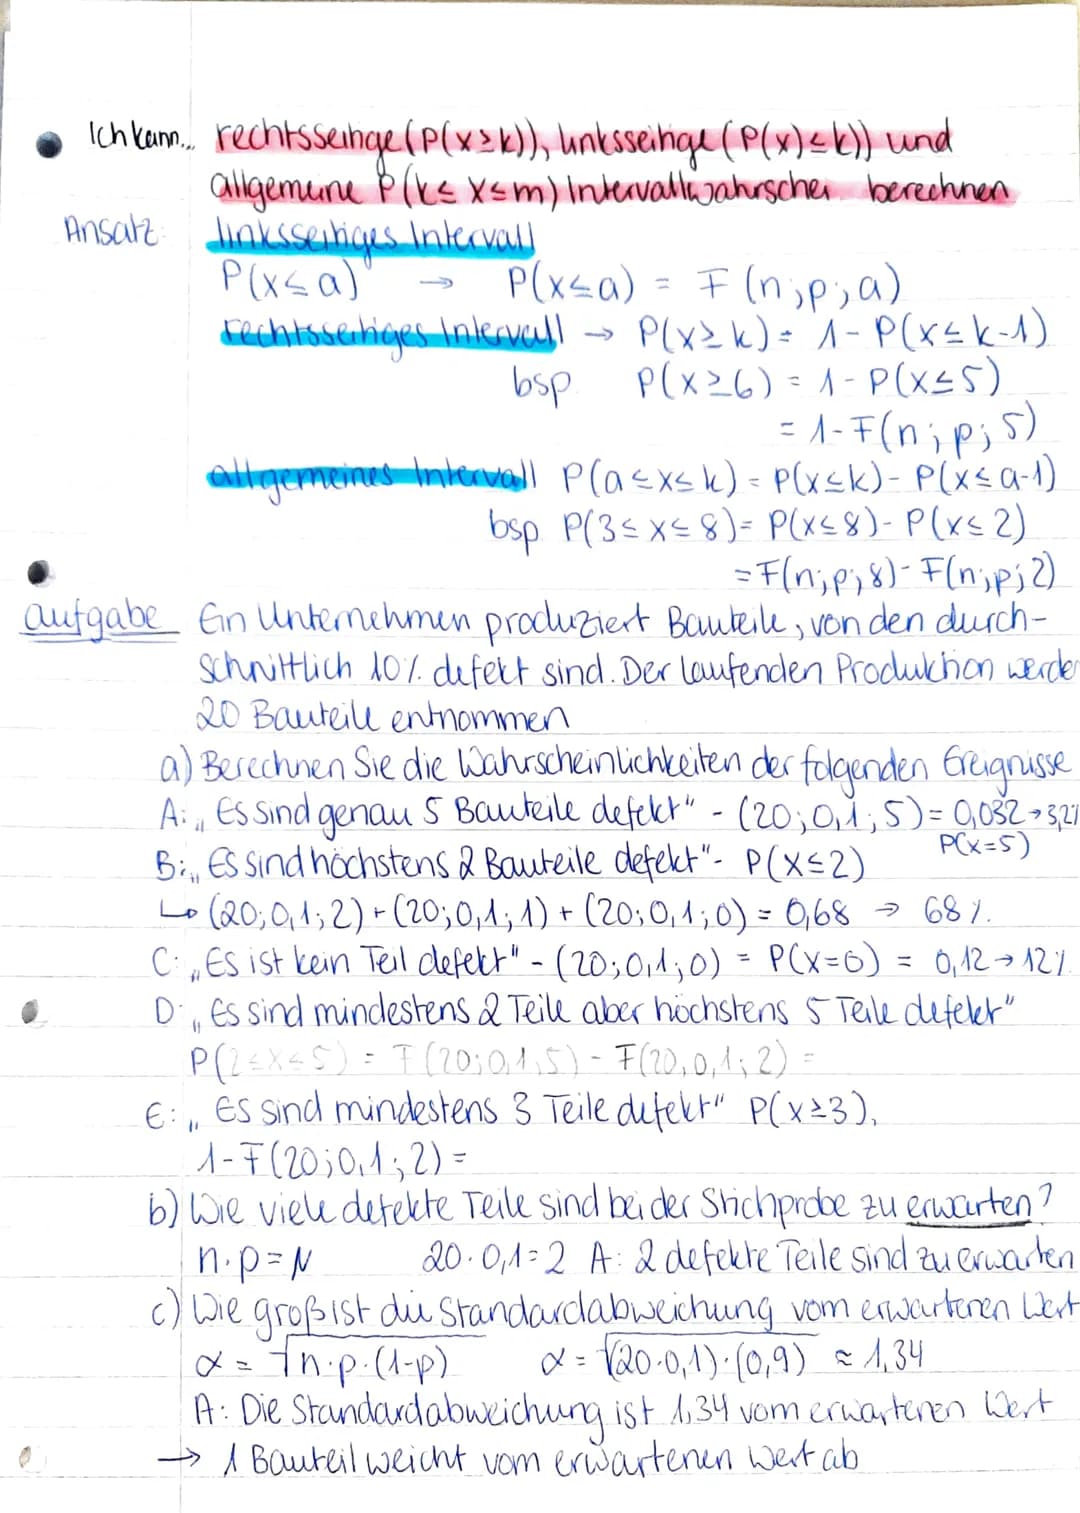 Ich kann... rechtsseitige (P(x≥k)), linksseitige (P(x)≤k)) und
allgemeine P(k≤ X≤m) Intervallwahrschei berechnen
Ansatz: linksseitiges Intervall
P(x≤a) → P(x≤a) = F(n;p;a)
rechtsseitiges Intervall → P(x≥k) = 1-P(x≤k-1)
bsp. P(x≥6) = 1-P(x≤5)
= 1-F(n;p;5)
allgemeines Intervall P(a≤x≤k) = P(x≤k)-P(x≤a-1)
bsp. P(3≤x≤8)= P(x≤8)-P(x≤2)
=F(n;p;8)-F(n;p;2)
aufgabe Ein Unternehmen produziert Bauteile, von den durch-
schnittlich 10% defekt sind. Der laufenden Produktion werden
20 Bauteile entnommen
a) Berechnen Sie die Wahrscheinlichkeiten der folgenden Ereignisse
A: „Es sind genau 5 Bauteile defekt" - (20;0,1;5) = 0,032→3,2%
P(x=5)
B: „Es sind höchstens 2 Bauteile defekt"- P(X≤2)
↳ (20;0,1;2)+(20;0,1;1)+(20;0,1;0) = 0,68 → 68%.
C: „Es ist kein Teil defekt" - (20;0,1;0) = P(X=0) = 0,12→12%
D: „Es sind mindestens 2 Teile aber höchstens 5 Teile defekt"
P(2≤X≤5) = F(20;0,1,5)-F(20,0,1;2) =
E: „Es sind mindestens 3 Teile defekt" P(x≥3),
1-F(20;0,1;2) =
b) Wie viele defekte Teile sind bei der Stichprobe zu erwarten?
n·p=N 20·0,1=2 A: 2 defekte Teile sind zu erwarten
c) Wie groß ist die Standardabweichung vom erwarteren Wert
α = √n·p·(1-p) α = √(20·0,1)·(0,9) ≈ 1,34
A: Die Standardabweichung ist 1,34 vom erwarteren Wert
→ 1 Bauteil weicht vom erwartenen Wert ab